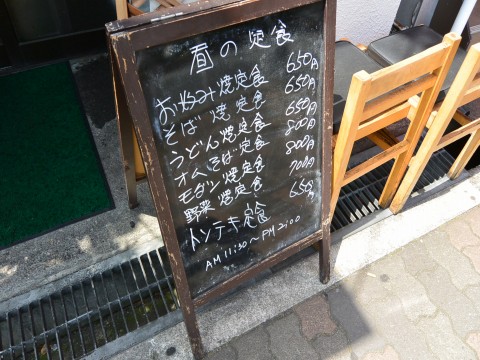 昼の定食
お好み焼定食 650円
そば焼定食 650円
うどん焼定食 650円
オムそば定食 800円
モダン焼定食 800円
野菜焼定食 700円
トンテキ定食 650円
AM 11:30～PM 2:00